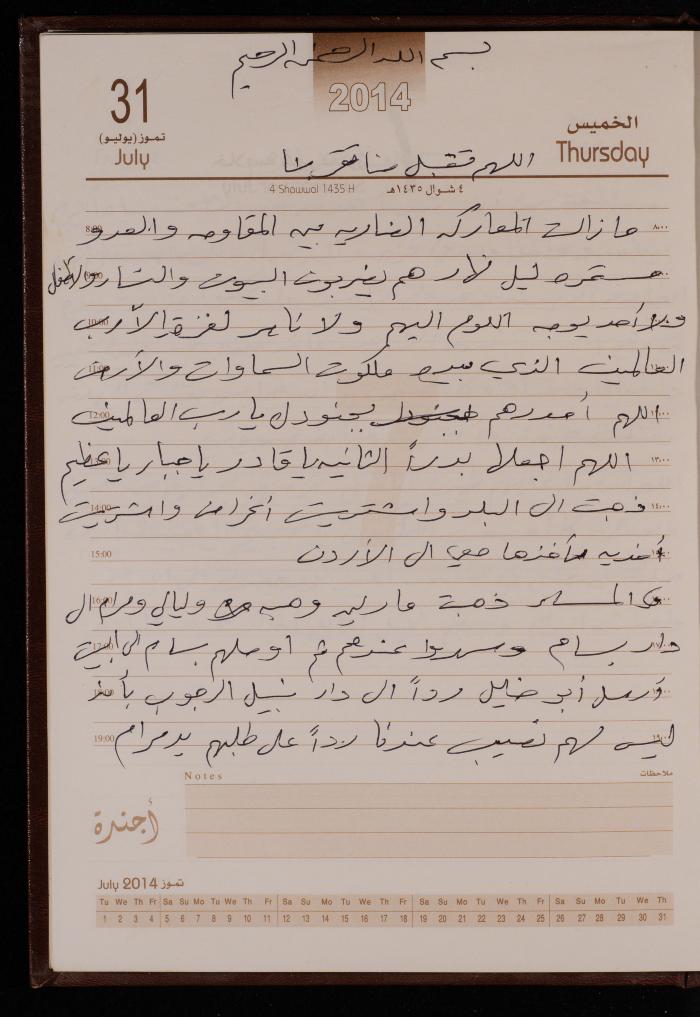 بسم الله الرحمن الرحيم
31
2014
تموز (يوليو)
الخميس
July
Thursday
اللهم تقبل منا
4 Shawwal 1435 H
٤ شوال ١٤٣٥هـ
ما زالت المعارك الضاريه بين المقاومه والعدو
مستمره ليل نهار هم يضربون البيوت والشارع والأطفال
ولا أحد يوجه اللوم اليهم ولا ناصر لغزة إلا رب
العالمين الذي بيده ملكوت السماوات والأرض
اللهم أمددهم بجنودك يارب العالمين
اللهم اجعلها بدراً الثانيه يا قادر يا جبار يا عظيم
ذهبت الى البلد واشتريت أغراض واشتريت
أحذيه معي الى الأردن
15:00
ذهبت مارلين وهبه وليالي ومرام الى
دار بسام وسهروا عندهم ثم أوصلهم بسام الى البيت
أرسل أبو خليل رداً الى دار نبيل الرجوب بأنه
ليس لهم نصيب عندنا رداً على طلبهم يد مرام
19:00
Notes
ملاحظات
أجندة
July 2014 تموز
Tu We Th Fr Sa Su Mo Tu We Th Fr Sa Su Mo Tu We Th Fr Sa Su Mo Tu We Th Fr Sa Su Mo Tu We Th
1 2 3 4 5 6 7 8 9 10 11 12 13 14 15 16 17 18 19 20 21 22 23 24 25 26 27 28 29 30 31